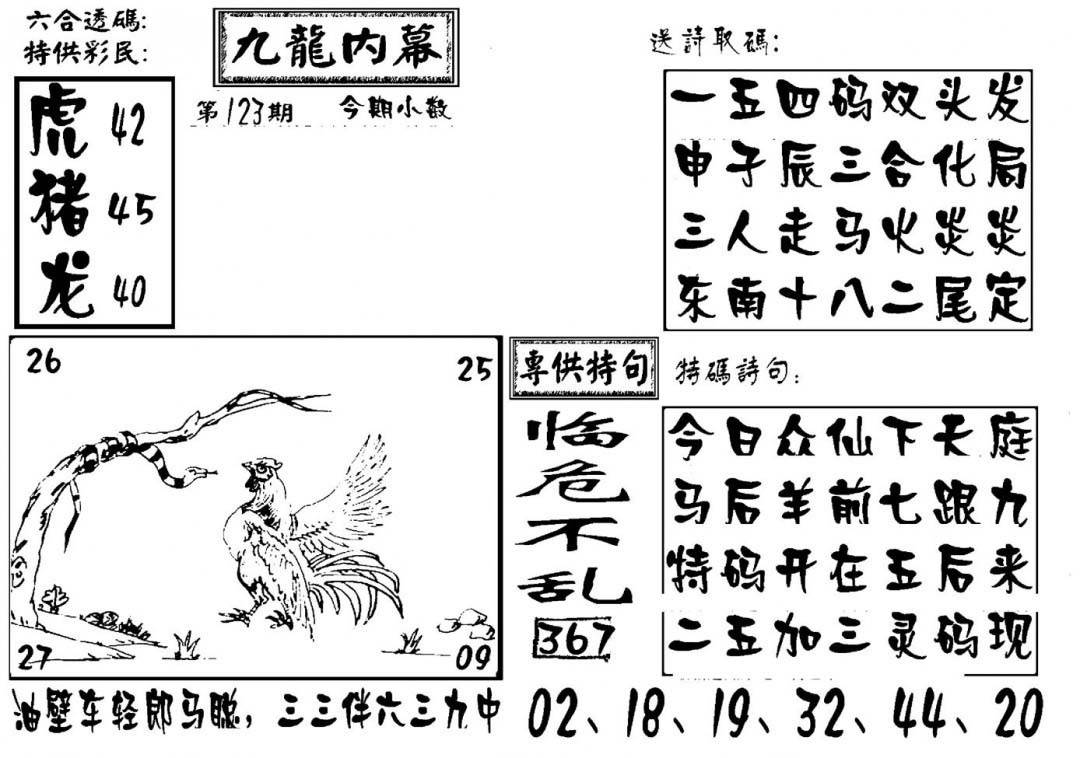 六合透碼:
特供彩民:
虎 42
猪 45
龙 40
九龍内幕
第123期 今期小数
送詩取碼:
一五四码双头发
申子辰三合化局
三人走马火炎炎
东南十八二尾定
26 25
27 09
專供特句
临危不乱
367
特碼詩句:
今日众仙下天庭
马后羊前七跟九
特码开在五后来
二五加三灵码现
油壁车轻郎马聪，三三伴六三九中
02、18、19、32、44、20